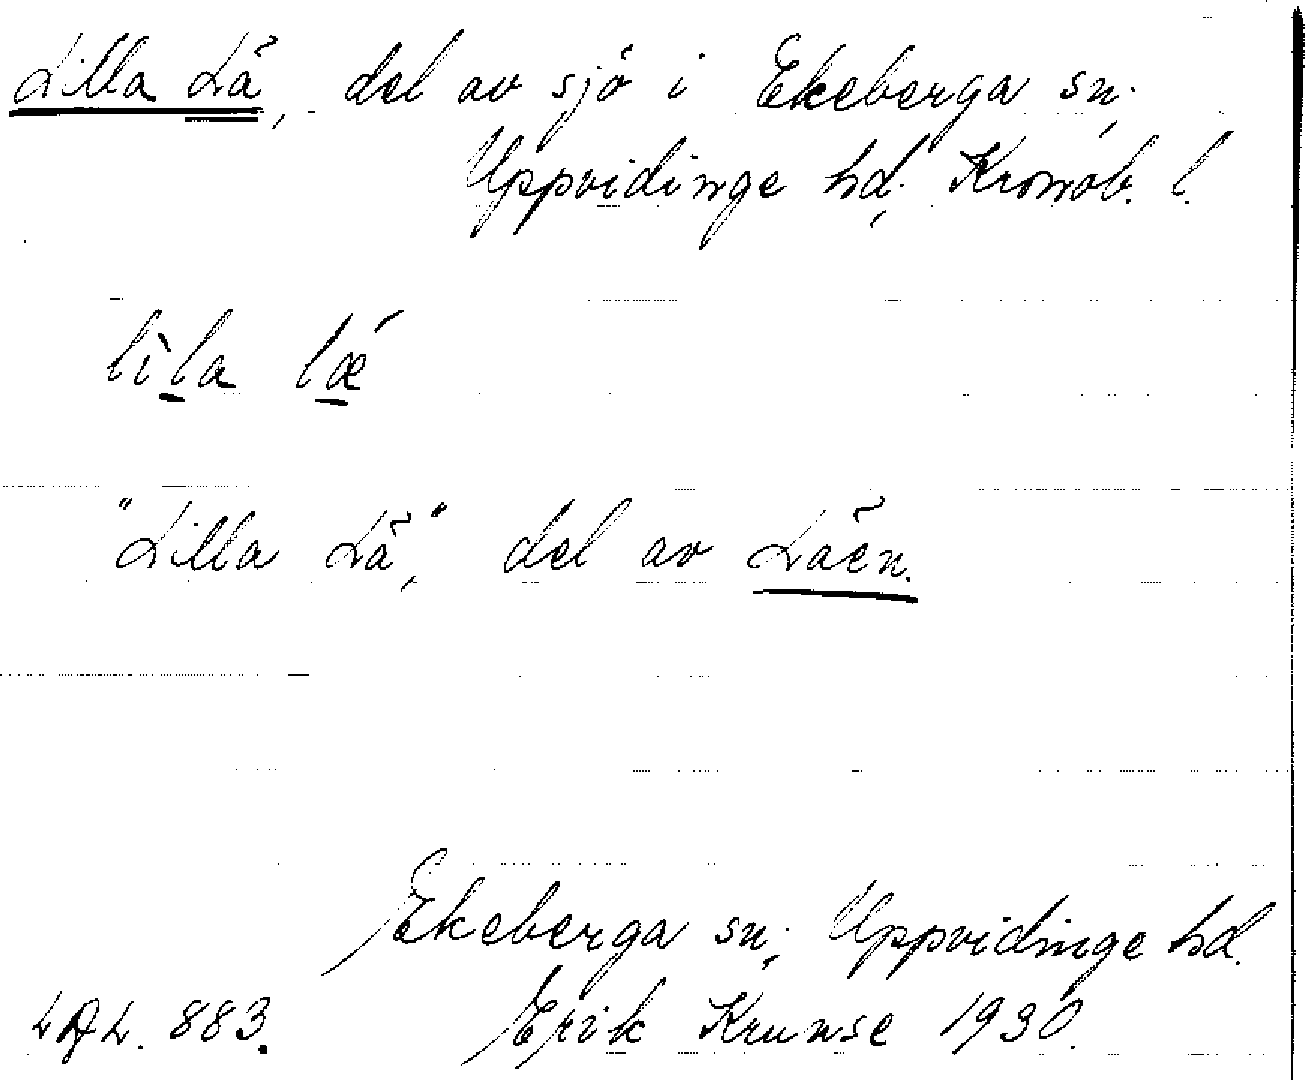 Lilla Lä, del av sjö i Ekeberga sn,
Uppvidinge hd, Kronob. l.
lìla lǽ
"Lilla Lä," del av Läen.
Ekeberga sn, Uppvidinge hd.
883. Erik Krunse 1930.